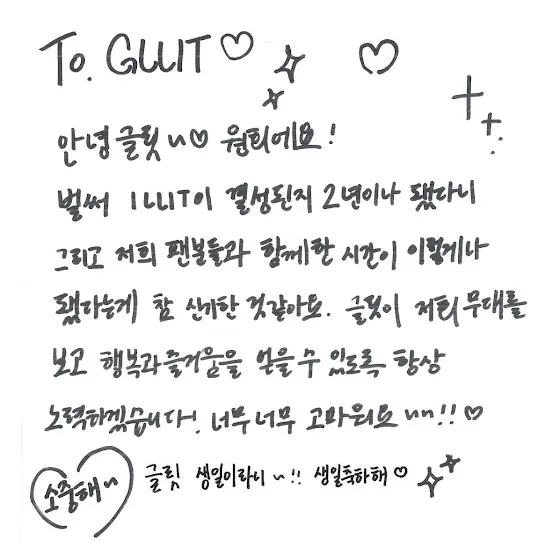 To. GLLIT♡ ♡
안녕 글릿~♡ 원희에요!
벌써 ILLIT이 결성된지 2년이나 됐다니
그리고 저희 팬분들과 함께한 시간이 이렇게나
됐다는게 참 신기한 것같아요. 글릿이 저희 무대를
보고 행복과 즐거움을 얻을 수 있도록 항상
노력하겠습니다! 너무너무 고마워요~~!!♡
소중해~ 글릿 생일이라니~!! 생일축하해♡